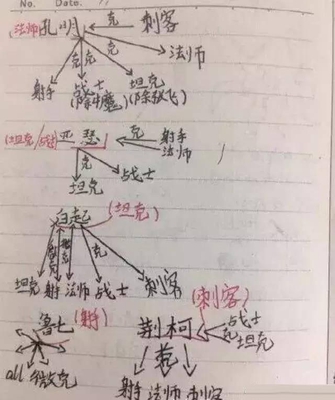 No. Date.
(法师)孔明 克 刺客
克 克 克 法师
射手 战士 坦克
(除牛魔) (除张飞)
(坦克/战) 亚瑟 克 射手
法师
克
坦克 战士
白起 (坦克)
克
坦克 射手 法师 战士 刺客
鲁七 (射) (刺客)
荆柯 战士
克 坦克
all 微克 惹
射手 法师 刺客